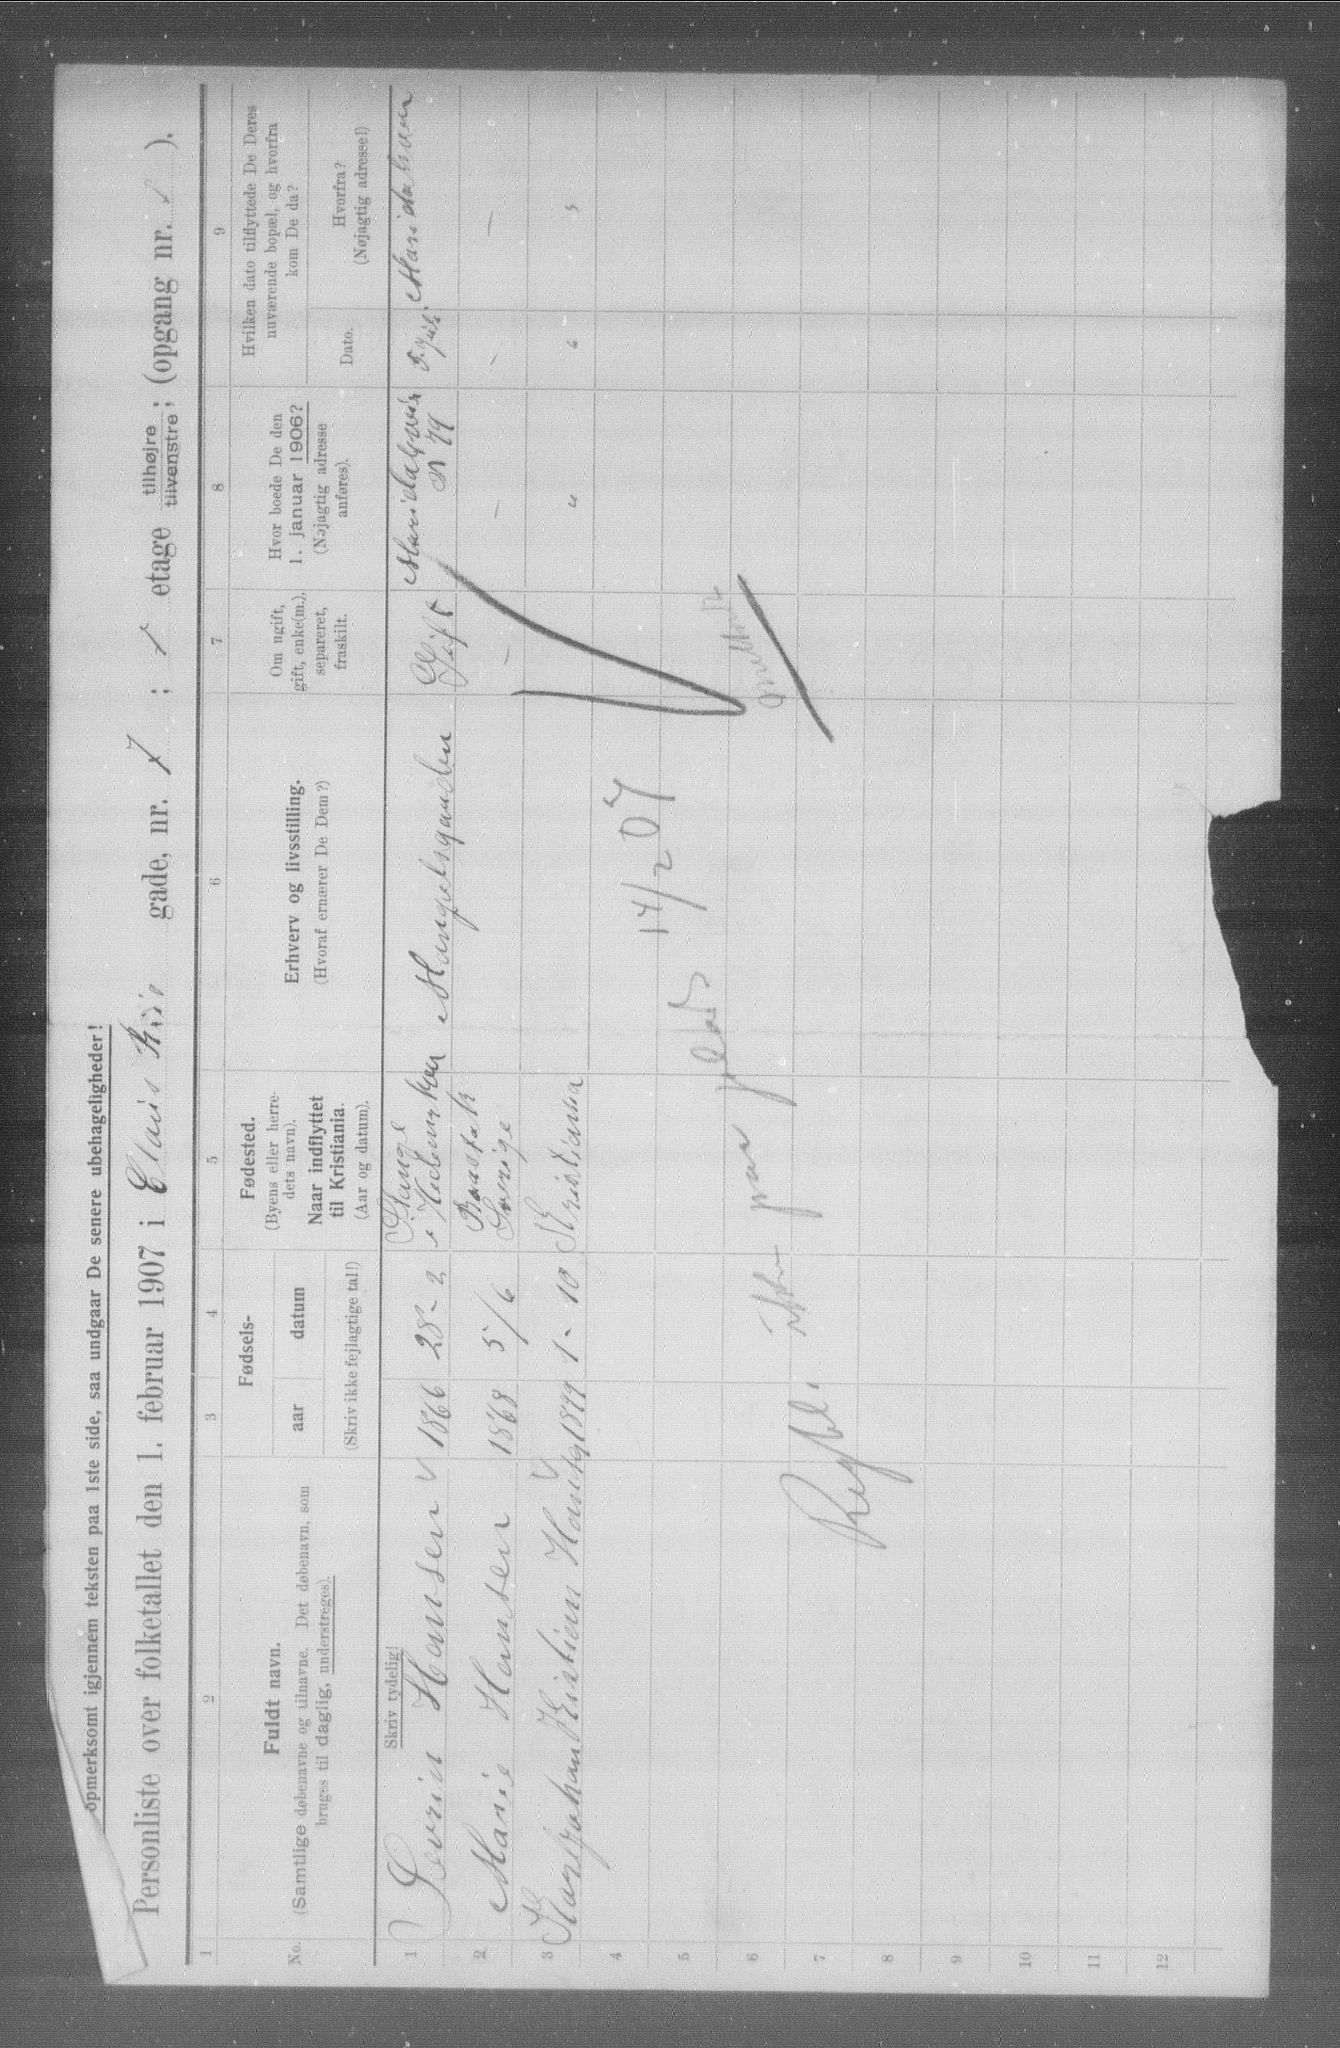 opmerksomt igjennem teksten paa 1ste side, saa undgaar De senere ubehageligheder!
Personliste over folketallet den 1. februar 1907 i Claus Riis gade, nr. 7 ; 1 etage tilhøjre tilvenstre ; (opgang nr. ).
1 2 3 4 5 6 7 8 9
No.
Fuldt navn.
(Samtlige døbenavne og tilnavne. Det døbenavn, som
bruges til daglig, understreges).
Fødsels-
aar datum
(Skriv ikke fejlagtige tal!)
Fødested.
(Byens eller herre-
dets navn).
Naar indflyttet
til Kristiania.
(Aar og datum).
Erhverv og livsstilling.
(Hvoraf ernærer De Dem?)
Om ugift,
gift, enke(m.),
separeret,
fraskilt.
Hvor boede De den
1. januar 1906?
(Nøjagtig adresse
anføres).
Hvilken dato tilflyttede De Deres
nuværende bopæl, og hvorfra
kom De da?
Dato.
Hvorfra?
(Nøjagtig adresse!)
Skriv tydelig!
1 Severin Hansen 1866 28-2 Stange
i Hedemarken Mangelsgaarden Gift Maridalsvein
N 79
2 Marie Hansen 1868 5/6
Sverige - - - -
3 Hans Johan Kristian 1899 1-10 Kristiania " " "
4
5
6
7
8
9
10
11
12
paa
14/2 07